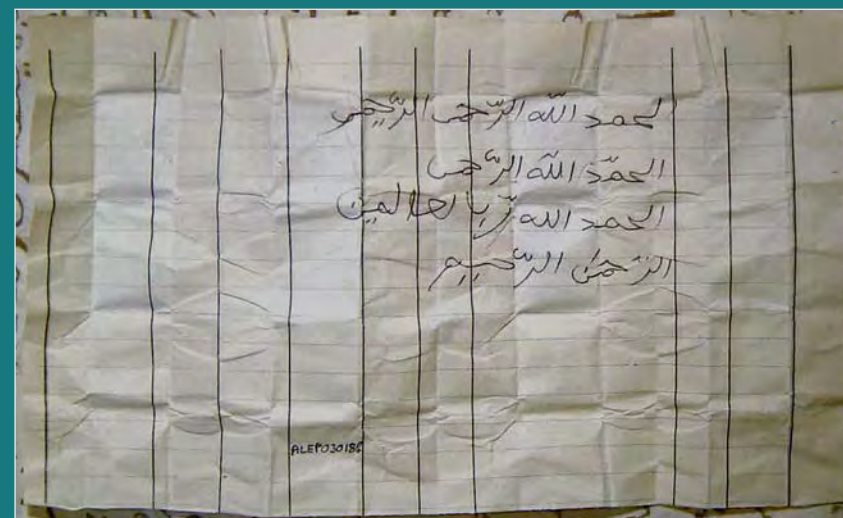 لحمد الله الرّحمن الرّحيم
الحمّد الله الرّحمن
الحمد الله رّبا لعالمين
الرّحمٰن الرّحيم
ALEPO30186